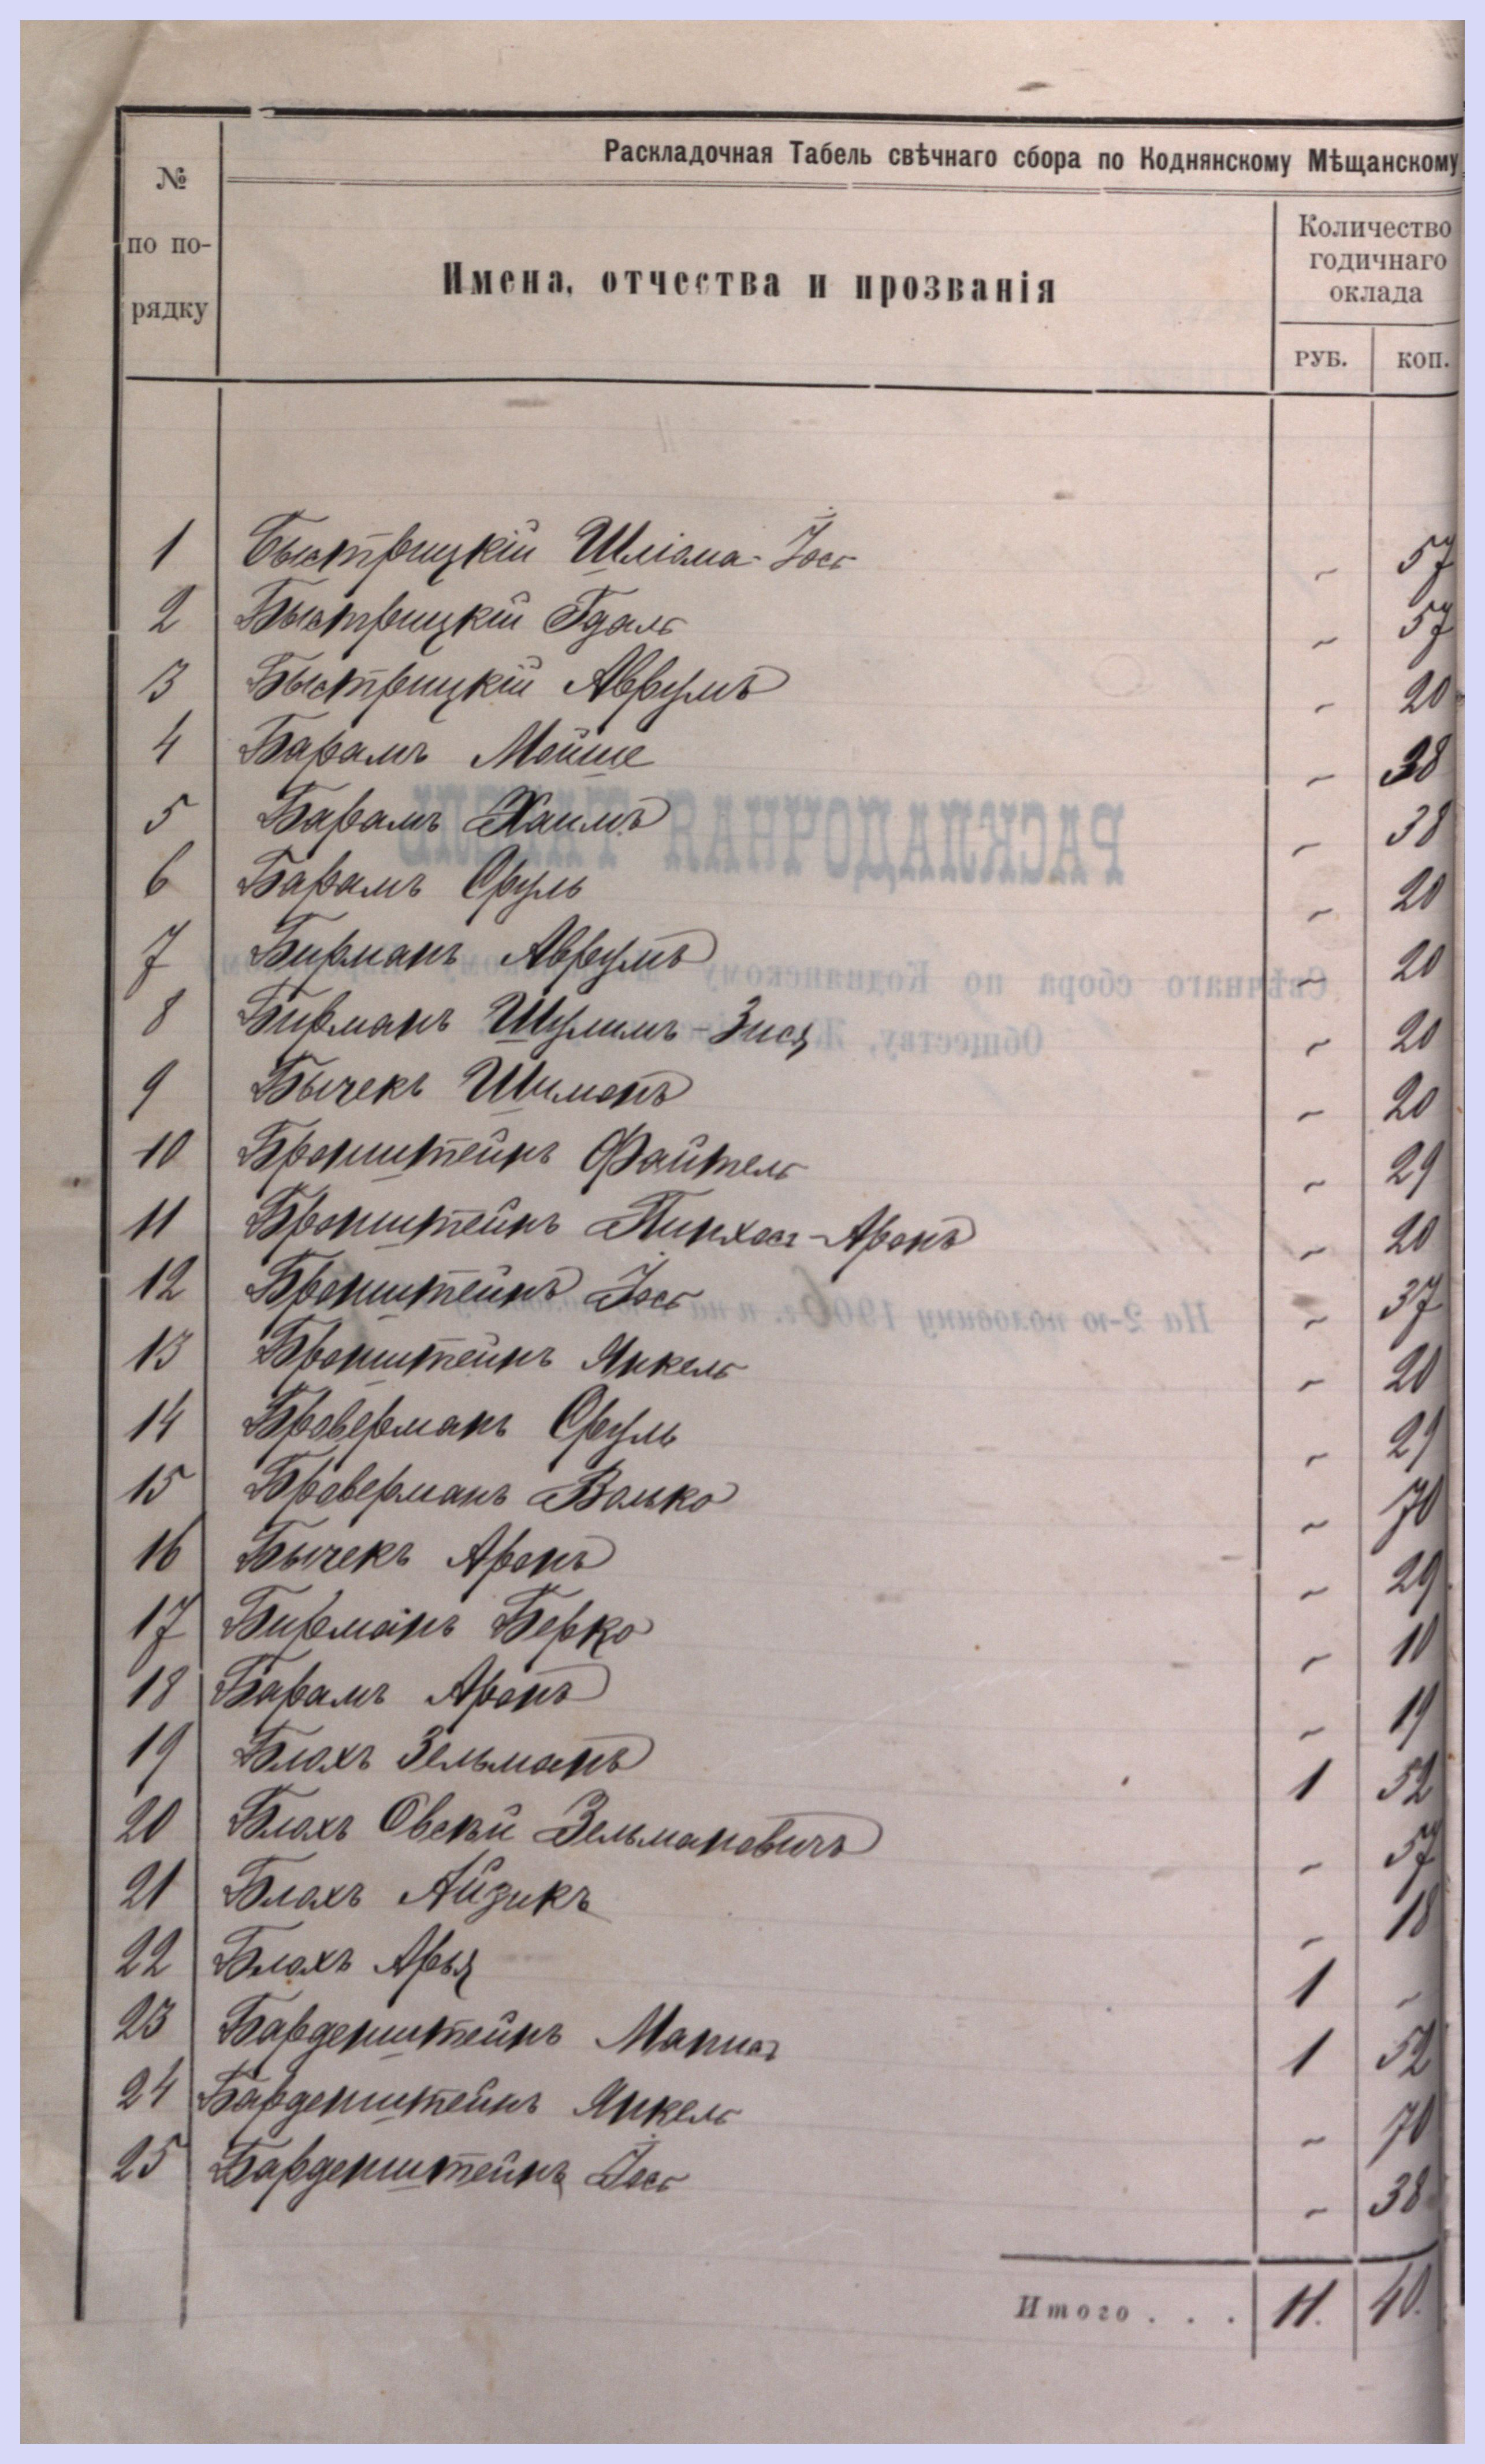 Раскладочная Табель свѣчнаго сбора по Коднянскому Мѣщанскому
№ по по-рядку
Имена, отчества и прозванія
Количество годичнаго оклада
РУБ. КОП.
1 Быстрицкій Шліома-Іосъ - 57
2 Быстрицкій Гдаль - 57
3 Быстрицкій Аврумъ - 20
4 Барамъ Мойше - 38
5 Барамъ Хаимъ - 38
6 Барамъ Сруль - 20
7 Бирманъ Аврумъ - 20
8 Бирманъ Шулимъ-Зися - 20
9 Бычекъ Шимонъ - 20
10 Бронштейнъ Файтель - 29
11 Бронштейнъ Пинхосъ-Аронъ - 20
12 Бронштейнъ Іосъ - 37
13 Бронштейнъ Янкель - 20
14 Броверманъ Сруль - 29
15 Броверманъ Волько - 70
16 Бычекъ Аронъ - 29
17 Бирманъ Берко - 10
18 Барамъ Аронъ - 19
19 Блохъ Зельманъ 1 52
20 Блохъ Овсѣй Зельмановичъ - 57
21 Блохъ Айзикъ - 18
22 Блохъ Арья 1 -
23 Барденштейнъ Манисъ 1 52
24 Барденштейнъ Янкель - 70
25 Барденштейнъ Іосъ - 38
Итого . . . 11. 40.